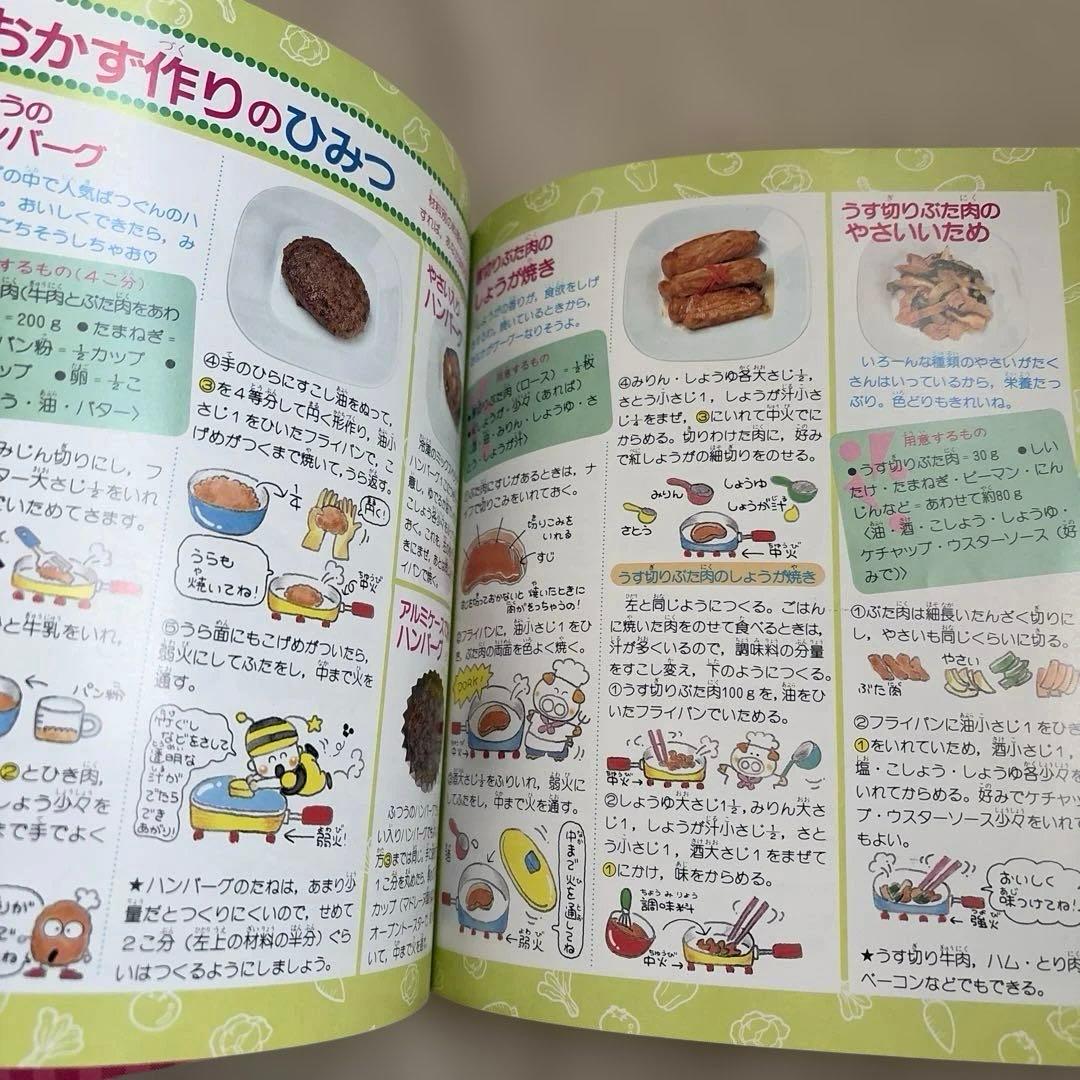 おかず作りのひみつ
うの
ンバーグ
の中で人気ばつぐんのハ
。おいしくできたら、み
ごちそうしちゃお♡
するもの(4こ分)
肉(牛肉とぶた肉をあわ
=200g ●たまねぎ=
パン粉=½カップ ●
ップ ●卵=½こ
う・油・バター〉
みじん切りにし、フ
ター大さじ½をいれ
ていためてさます。
と牛乳をいれ、
パン粉
②とひき肉、
しょう少々を
まで手でよく
④手のひらにすこし油をぬって、
③を4等分して円く形作り、油小
さじ1をひいたフライパンで、こ
げめがつくまで焼いて,うら返す。
¼
円く!
うらも
焼いてね!
中火
⑤うら面にもこげめがついたら、
弱火にしてふたをし、中まで火を
通す。
竹ぐし
などをさして
透明な
汁が
でたら
でき
あがり!
弱火!
★ハンバーグのたねは、あまり少
量だとつくりにくいので、せめて
2こ分(左上の材料の半分)ぐら
いはつくるようにしましょう。
ハンバーグ
アルミケース
ハンバーグ
ふつうのハンバーグ
方③までは同じ。
カップ(マドレーヌ
オーブントースター
いて、中まで火を
切りぶた肉の
しょうが焼き
しょうがの香りが、食欲をしげ
き。焼いているときから、
おなかがグーグーなりそうよ。
用意するもの
ぶた肉(ロース)=½枚
しょうが・少々(あれば)
油・みりん・しょうゆ・さ
とう・しょうが汁〉
ぶた肉にすじがあるときは、ナ
イフで切りこみをいれておく。
切りこみを
いれる
すじ
すじを切っておかないと 焼いたときに
肉がまっちゃうの!
②フライパンに、油小さじ1をひ
き、ぶた肉の両面を色よく焼く。
PORK!
中火
③酒大さじ½をふりいれ、弱火に
してふたをし、中まで火を通す。
中まで火を通してね
弱火
④みりん・しょうゆ各大さじ½、
さとう小さじ1、しょうが汁小さ
じ½をまぜ、③にいれて中火でに
からめる。切りわけた肉に、好み
で紅しょうがの細切りをのせる。
みりん
しょうゆ
しょうが汁
さとう
中火
うす切りぶた肉のしょうが焼き
左と同じようにつくる。ごはん
に焼いた肉をのせて食べるときは、
汁が多くいるので、調味料の分量
をすこし変え、下のようにつくる。
①うす切りぶた肉100gを、油をひ
いたフライパンでいためる。
中火
②しょうゆ大さじ1½、みりん大さ
じ1、しょうが汁小さじ½、さと
う小さじ1、酒大さじ1をまぜて
①にかけ、味をからめる。
調味料
中火
うす切りぶた肉の
やさいいため
いろーんな種類のやさいがたく
さんはいっているから、栄養たっ
ぷり。色どりもきれいね。
用意するもの
●うす切りぶた肉=30g ●しい
たけ・たまねぎ・ピーマン・にん
じんなど=あわせて約80g
〈油・酒・こしょう・しょうゆ・
ケチャップ・ウスターソース(好
みで)〉
①ぶた肉は細長いたんざく切りに
し、やさいも同じくらいに切る。
やさい
ぶた肉
②フライパンに油小さじ1をひき
①をいれていため、酒小さじ1、
塩・こしょう・しょうゆ各少々を
いれてからめる。好みでケチャッ
プ・ウスターソース少々をいれて
もよい。
おいしく
味つけてね!
強火
★うす切り牛肉、ハム・とり肉
ベーコンなどでもできる。